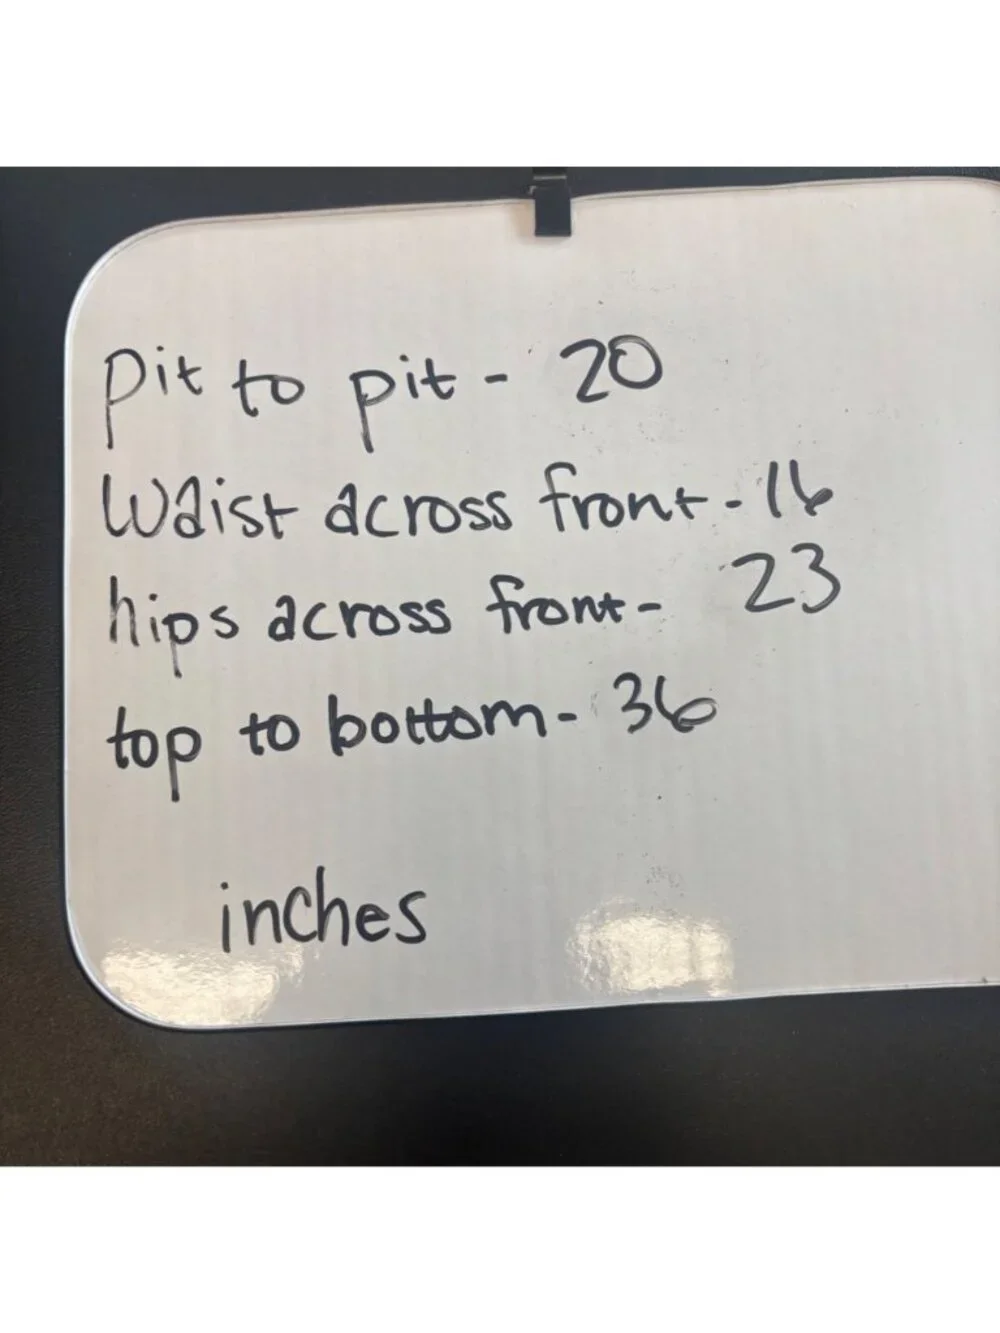 pit to pit - 20
Waist across front - 16
hips across front - 23
top to bottom - 36
inches